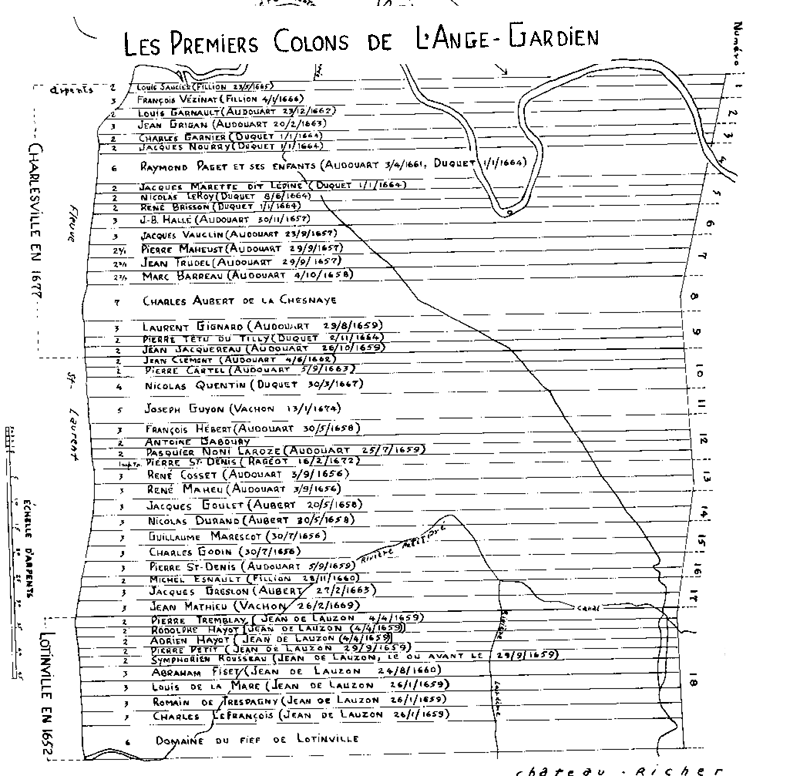 LES PREMIERS COLONS DE L'ANGE-GARDIEN
Numéro
arpents
2 LOUIS SAUCIER (FILLION 23/5/1665)
3 FRANÇOIS VÉZINAT (FILLION 4/1/1666)
2 LOUIS GARNAULT (AUDOUART 23/12/1662)
3 JEAN GRIGAN (AUDOUART 20/2/1663)
2 CHARLES GARNIER (DUQUET 1/1/1664)
2 JACQUES NOURRY (DUQUET 1/1/1664)
6 RAYMOND PAGET ET SES ENFANTS (AUDOUART 3/4/1661, DUQUET 1/1/1664)
2 JACQUES MARETTE DIT LÉPINE (DUQUET 1/1/1664)
2 NICOLAS LEROY (DUQUET 8/6/1664)
2 RENÉ BRISSON (DUQUET 1/1/1664)
3 J-B. HALLÉ (AUDOUART 30/11/1657)
3 JACQUES VAUCLIN (AUDOUART 23/9/1657)
PIERRE MAHEUST (AUDOUART 29/9/1657)
JEAN TRUDEL (AUDOUART 29/9/1657)
MARC BARREAU (AUDOUART 4/10/1658)
7 CHARLES AUBERT DE LA CHESNAYE
3 LAURENT GIGNARD (AUDOUART 29/8/1659)
2 PIERRE TÊTU DU TILLY (DUQUET 2/11/1664)
2 JEAN JACQUEREAU (AUDOUART 26/10/1659)
2 JEAN CLÉMENT (AUDOUART 4/6/1662)
2 PIERRE CARTEL (AUDOUART 5/9/1663)
4 NICOLAS QUENTIN (DUQUET 30/3/1667)
5 JOSEPH GUYON (VACHON 13/1/1674)
3 FRANÇOIS HÉBERT (AUDOUART 30/5/1658)
2 ANTOINE GABOURY
2 PASQUIER NONI LAROZE (AUDOUART 25/7/1659)
PIERRE ST-DENIS (RAGEOT 16/2/1672)
3 RENÉ COSSET (AUDOUART 3/9/1656)
3 RENÉ MAHEU (AUDOUART 3/9/1656)
3 JACQUES GOULET (AUBERT 20/5/1658)
3 NICOLAS DURAND (AUBERT 30/5/1658)
3 GUILLAUME MARESCOT (30/7/1656)
3 CHARLES GODIN (30/7/1656)
3 PIERRE ST-DENIS (AUDOUART 5/9/1659)
2 MICHEL ESNAULT (FILLION 28/11/1660)
3 JACQUES GRESLON (AUBERT 27/2/1663)
3 JEAN MATHIEU (VACHON 26/2/1669)
2 PIERRE TREMBLAY (JEAN DE LAUZON 4/4/1659)
2 RODOLPHE HAYOT (JEAN DE LAUZON (4/4/1659)
2 ADRIEN HAYOT (JEAN DE LAUZON (4/4/1659)
2 PIERRE PETIT (JEAN DE LAUZON 29/9/1659)
2 SYMPHORIEN ROUSSEAU (JEAN DE LAUZON, LE OU AVANT LE 29/9/1659)
3 ABRAHAM FISET (JEAN DE LAUZON 24/8/1660)
3 LOUIS DE LA MARE (JEAN DE LAUZON 26/1/1659)
3 ROMAIN DE TRESPAGNY (JEAN DE LAUZON 26/1/1659)
3 CHARLES LEFRANÇOIS (JEAN DE LAUZON 26/1/1659)
6 DOMAINE DU FIEF DE LOTINVILLE
1
2
3
4
5
6
7
8
9
10
11
12
13
14
15
16
17
18
CHARLESVILLE EN 1677
Fleuve
St- Laurent
ÉCHELLE D'ARPENTS
LOTINVILLE EN 1652
Rivière
Canal
Rivière
château-Richer